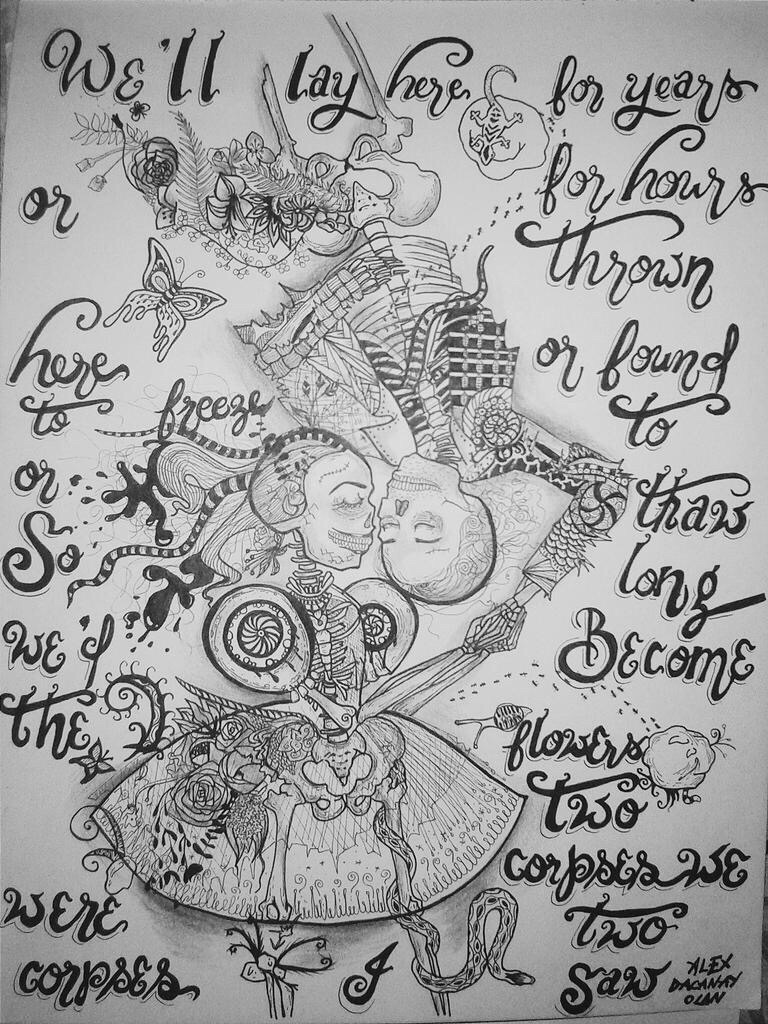 We'll lay here for years
or for hours
thrown
here or found
to freeze to
or thaw
So long
we'd Become
the flowers
two
corpses we
were two
corpses I saw
ALEX
OLAN